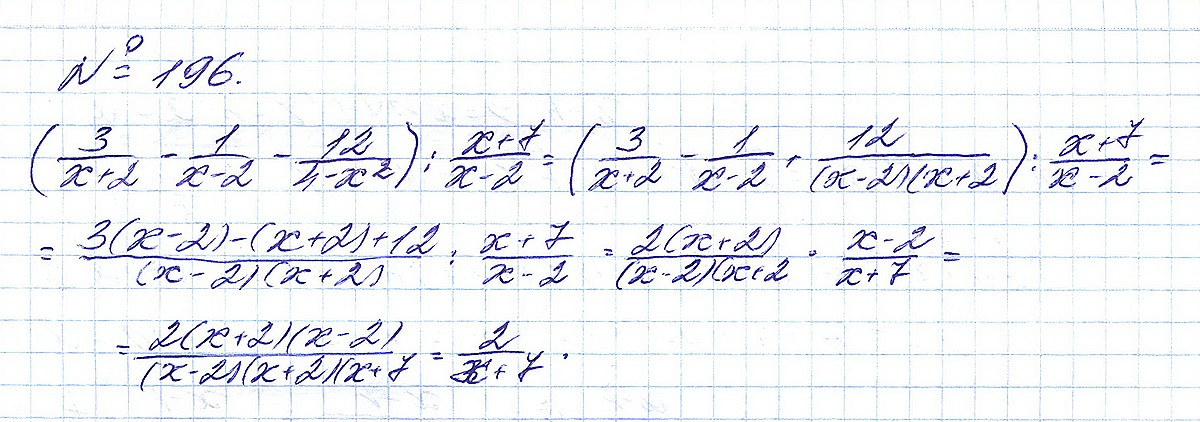 № 196.
(3/(x+2) - 1/(x-2) - 12/(4-x²)) : (x+7)/(x-2) = (3/(x+2) - 1/(x-2) + 12/((x-2)(x+2)) : (x+7)/(x-2) =
= (3(x-2)-(x+2)+12)/((x-2)(x+2)) : (x+7)/(x-2) = 2(x+2)/((x-2)(x+2) · (x-2)/(x+7) =
= 2(x+2)(x-2)/((x-2)(x+2)(x+7) = 2/(x+7).